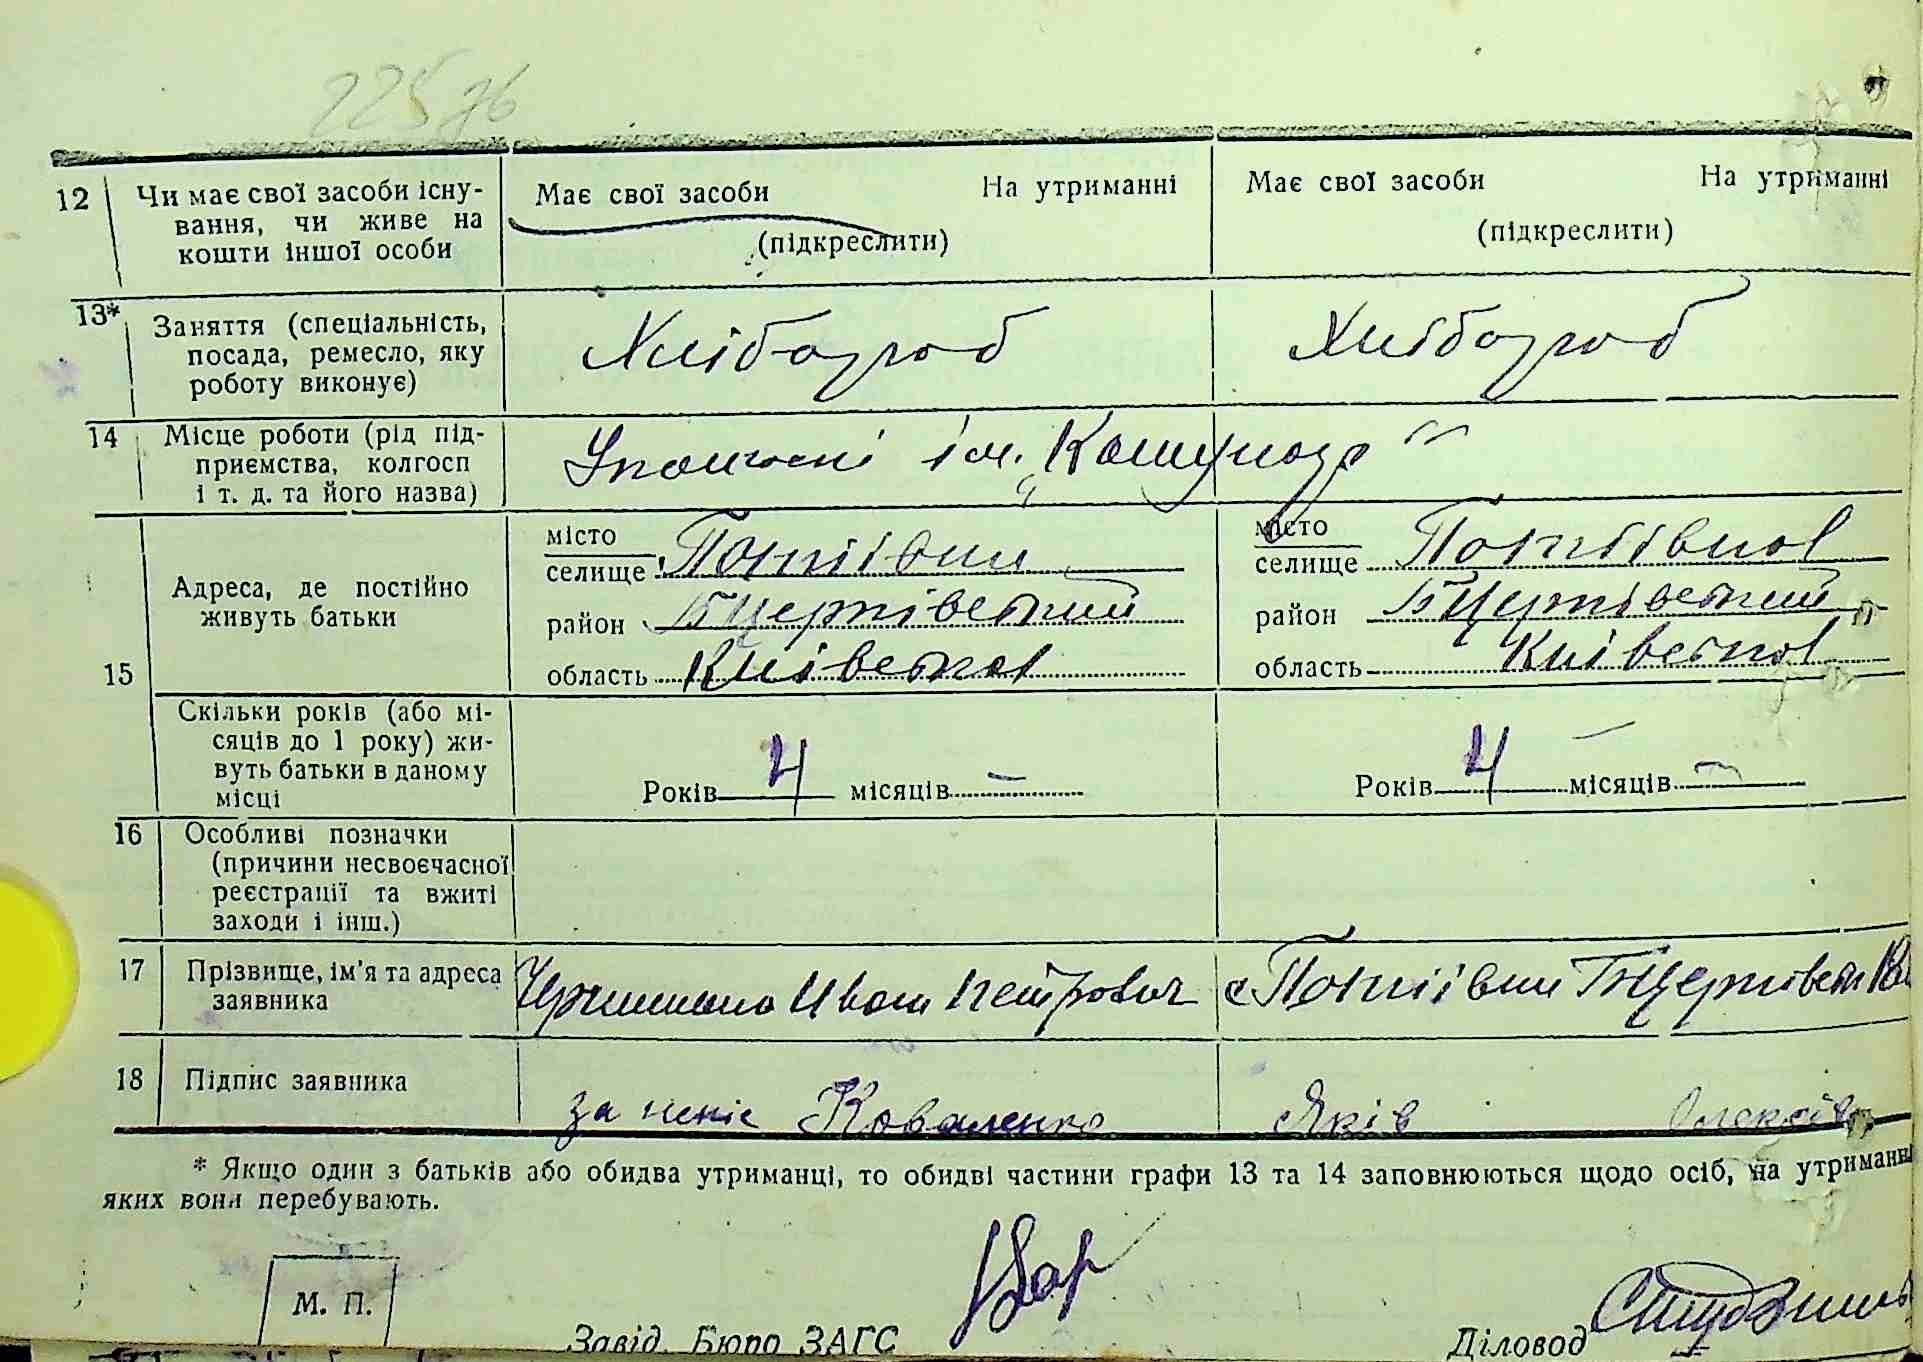 12 Чи має свої засоби існу-
вання, чи живе на
кошти іншої особи
Має свої засоби На утриманні
(підкреслити)
Має свої засоби На утриманні
(підкреслити)
13* Заняття (спеціальність,
посада, ремесло, яку
роботу виконує)
Хлібороб
Хлібороб
14 Місце роботи (рід під-
приємства, колгосп
і т. д. та його назва)
ім.
15
Адреса, де постійно
живуть батьки
місто
селище
район Б Церківський
область Київська
місто
селище
район Б Церківський
область Київська
Скільки років (або мі-
сяців до 1 року) жи-
вуть батьки в даному
місці
Років 4 місяців —
Років 4 місяців —
16 Особливі позначки
(причини несвоєчасної
реєстрації та вжиті
заходи і інш.)
17 Прізвище, ім'я та адреса
заявника
Иван Петрович
с
18 Підпис заявника
за Коваленко Яків Олексів
* Якщо один з батьків або обидва утриманці, то обидві частини графи 13 та 14 заповнюються щодо осіб, на утриманні
яких вони перебувають.
М. П.
Завід. Бюро ЗАГС
Діловод